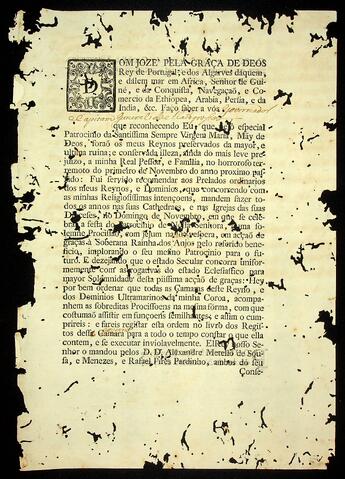 DOM JOZE PELA GRAÇA DE DEOS
Rey de Portugal, e dos Algarves dáquem,
e dálem mar em Africa, Senhor de Gui-
né, e da Conquista, Navegaçaõ, e Co-
mercio da Ethiopea, Arabia, Persia, e da
India, &c. Faço saber a vós Governador
Capitam General
que reconhecendo Eu, que ao especial
Patrocinio da Santissima Sempre Virgem Maria, Mãy de
Deos, foraõ os meus Reynos preservados da mayor, e
ultima ruina; e conservada illeza, ainda do mais leve pre-
juizo, a minha Real Pessoa, e Familia, no horroroso ter-
remoto do primeiro de Novembro do anno proximo pas-
sado: Fui servido recomendar aos Prelados ordinarios
dos meus Reynos, e Dominios, que concorrendo com
as minhas Religiosissimas intençoens, mandem fazer todos
os annos nas suas Cathedraes, e nas Igrejas das suas
Dioceses, no Domingo de Novembro, em que se cele-
bra a festa do Patrocinio de Senhora, uma so-
lemne Procissaõ, com jejum vespera, em acçaõ de
graças à Soberana Rainha dos Anjos pelo referido bene-
ficio, implorando o seu mesmo Patrocinio para o futu-
ro. E dezejando que o estado Secular concorra unifor-
memente com as do estado Ecclesiastico para
mayor Solemnidade desta piissima acçaõ de graças: Hey
por bem ordenar que todas as Camaras deste Reyno, e
dos Dominios Ultramarinos da minha Coroa, acompa-
nhem as sobreditas Procissoens na mesma fórma, com que
costumaõ assistir em funçoens semilhantes; e assim o cum-
prireis: e fareis registar esta ordem no livro dos Regis-
tos dessa Camara para a todo o tempo constar o que ella
contém, e se executar inviolavelmente. El Rey nosso Se-
nhor o mandou pelos D. D. Alexandre Metello de Sou-
sa, e Menezes, e Rafael Pires Pardinho, ambos do seu
Conse-